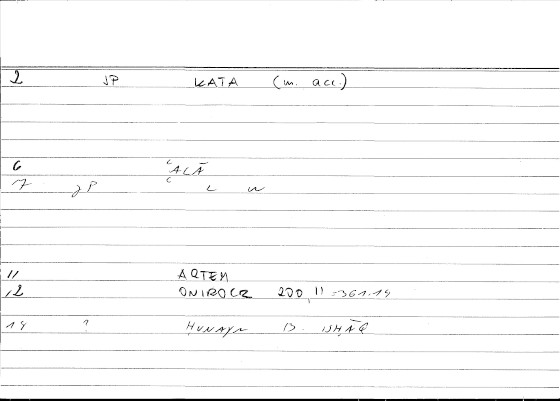 2 JP KATA (m. acc.)
6 ʿALĀ
7 JP
11 ARTEM
12 ONIROCR 200,11 = 361.14
14 ? ḤUNAYN B. ISḤĀQ